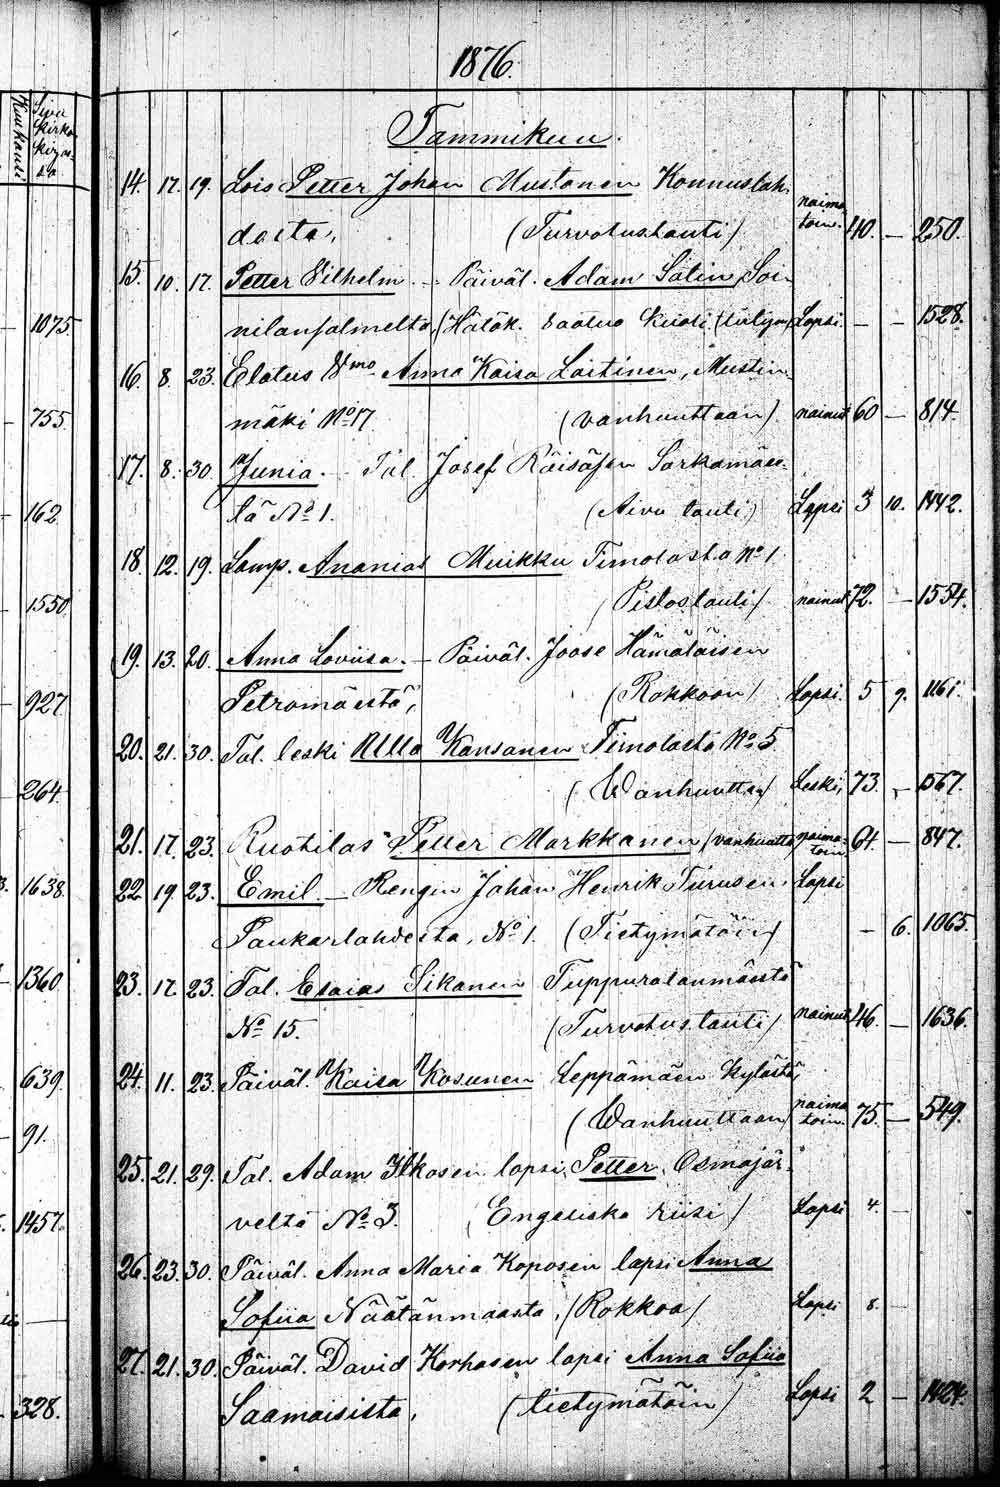 1876.
Kuukausi
Sivu
kirkon
kirjas-
sa
Tammikuu.
14. 17. 19. Lois Petter Johan Mustonen Konnuslah
naima
toin.
desta, (Turvotustauti) 40. — 250.
15. 10. 17. Petter Vilhelm — Päiväl. Adam Sätin Soi-
1075
nilansalmelta, Lapsi. — — 1528.
16. 8. 23. Elätus Vmo Anna Kaisa Laitinen, Mustin-
755
mäki No 17 (vanhuuttaan) nainut 60 — 814.
17. 8. 30. Junia. — Tal. Josef Räisäsen Sarkamäes-
162
tä No 1. (Aivu tauti) Lapsi 3 10. 1442.
18. 12. 19. Lamp. Ananias Muikku Timolasta No 1
1550
(Pistostauti) nainut 72. — 1554.
19. 13. 20. Anna Loviisa. — Päiväl. Joose Hämäläisen
927
Petromäestä, (Rokkoon) Lapsi. 5 9. 1161.
20. 21. 30. Tal. leski Ulla Kansanen Timolasta No 5
264
(Wanhuuttan) Leski, 73. — 1567.
21. 17. 23. Ruotilas Petter Markkanen (vanhuutta naima-
toin 64. — 847.
1638
22 19. 23. Emil — Rengin Johan Henrik Turusen Lapsi
Paukarlahdesta, No 1. (Tietymätöin) — 6. 1065.
1360
23. 17. 23. Tal. Esaias Sikanen Tuppuralanmäestä
No 15. (Turvotus tauti) nainut 46. — 1636.
639.
24. 11. 23. Päiväl. Kaisa Kosunen Leppämäen kylästä,
91.
(Wanhuuttaan) naima
toin. 75. — 549.
25. 21. 29. Tal. Adam Ikosen lapsi Petter Osmajär-
1457.
veltä No 3. (Engeliska riisi) Lapsi 4. —
26. 23. 30. Päiväl. Anna Maria Koposen lapsi Anna
Sofiia Näätänmaasta, (Rokkoa) Lapsi 8. —
27. 21. 30. Päiväl. David Korhosen lapsi Anna Sofiia
328.
Saamaisista, (tietymätöin) Lapsi 2 — 1424.